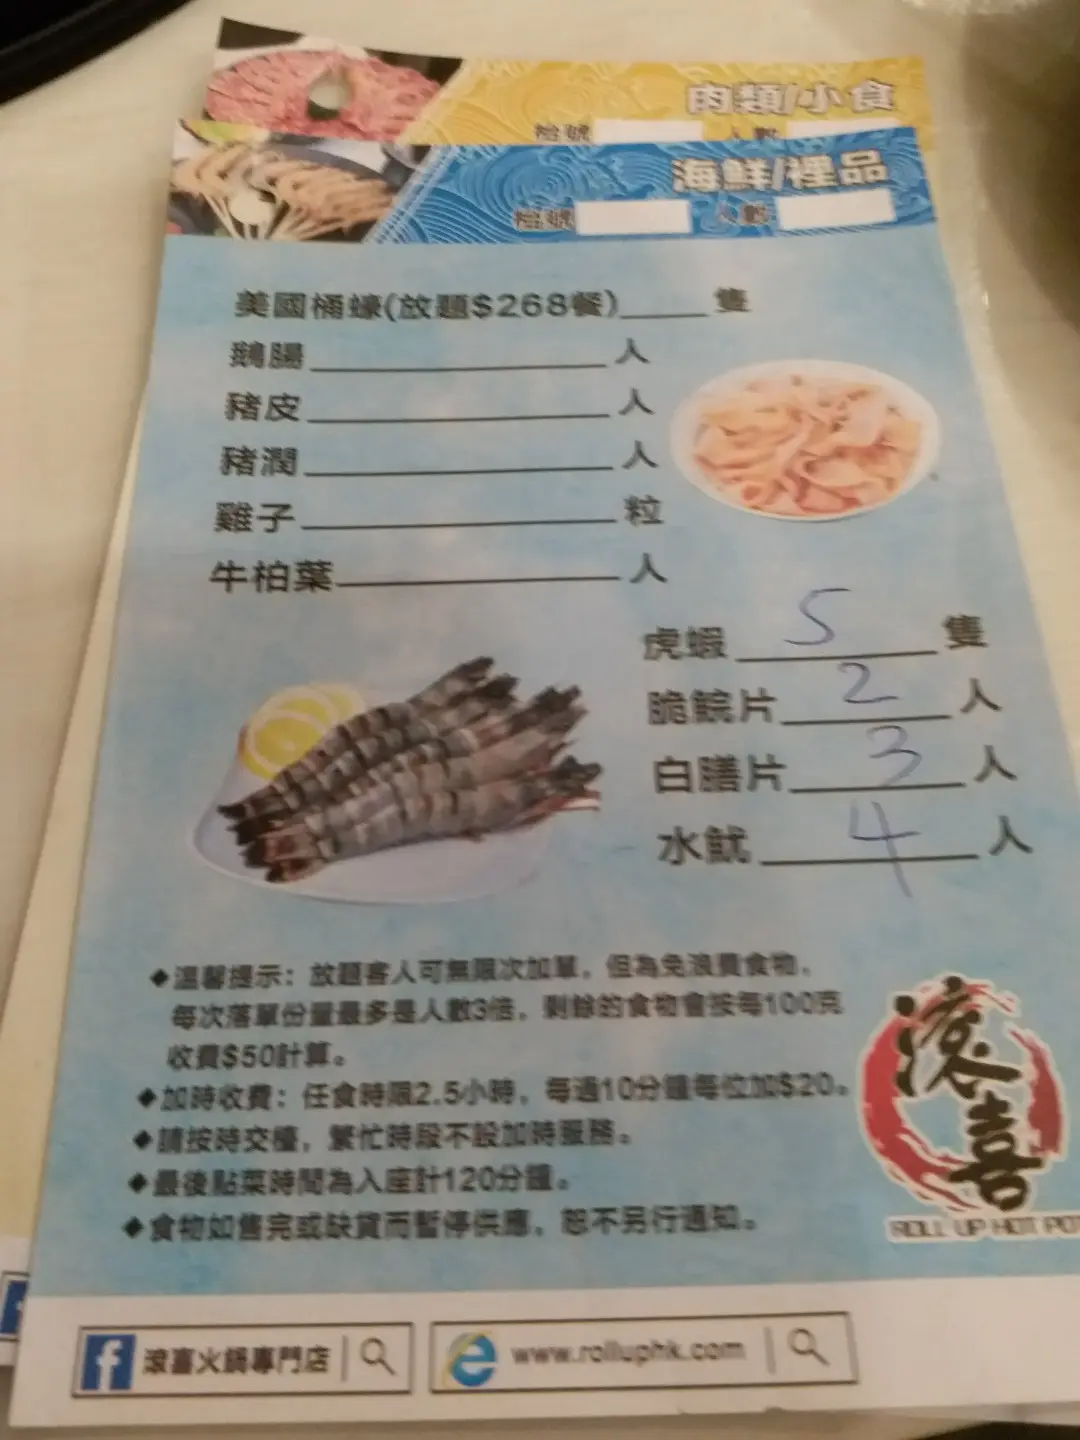 肉類/小食
枱號 人數
海鮮/裡品
枱號 人數
美國桶蠔(放題$268餐)____隻
鵝腸____人
豬皮____人
豬潤____人
雞子____粒
牛柏葉____人
虎蝦 5 隻
脆鯇片 2 人
白膳片 3 人
水魷 4 人
◆溫馨提示：放題客人可無限次加單，但為免浪費食物，
每次落單份量最多是人數3倍，剩餘的食物會按每100克
收費$50計算。
◆加時收費：任食時限2.5小時，每過10分鐘每位加$20。
◆請按時交檯，繁忙時段不設加時服務。
◆最後點菜時間為入座計120分鐘。
◆食物如售完或缺貨而暫停供應，恕不另行通知。
滾喜
ROLL UP HOT POT
滾喜火鍋專門店
www.rolluphk.com